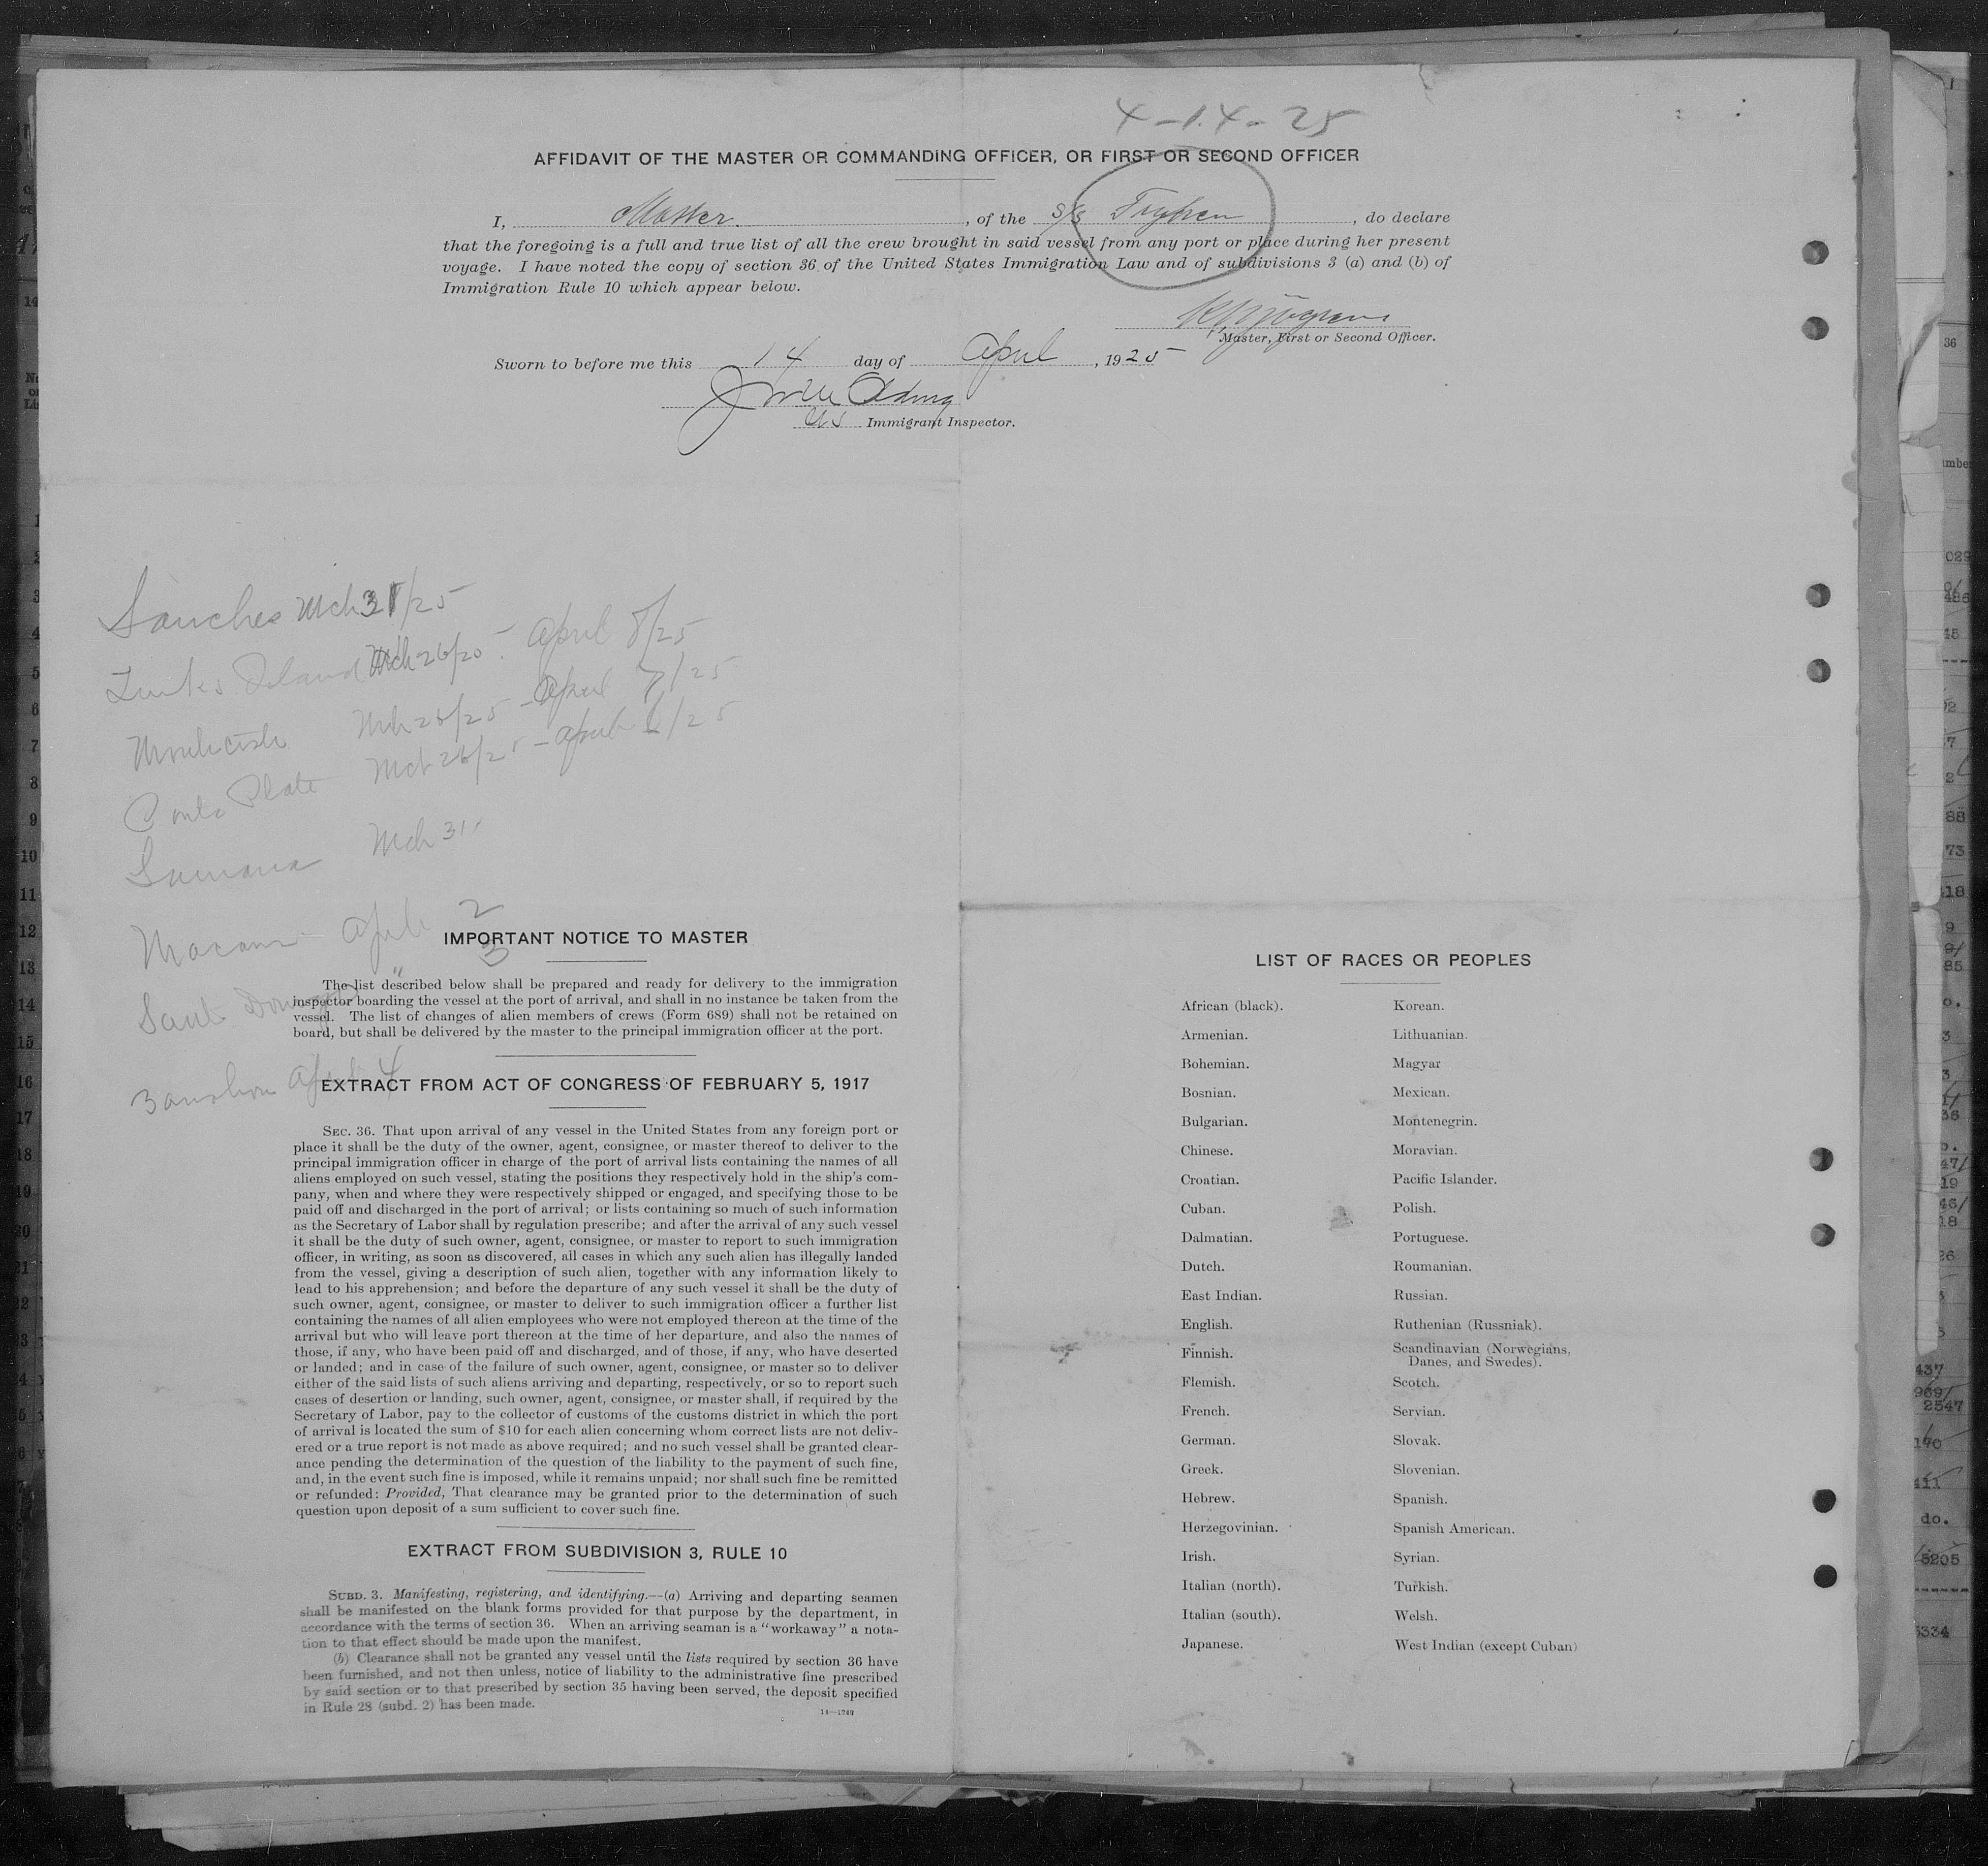 4-14-25
AFFIDAVIT OF THE MASTER OR COMMANDING OFFICER, OR FIRST OR SECOND OFFICER
I, Master. , of the S/S , do declare
that the foregoing is a full and true list of all the crew brought in said vessel from any port or place during her present
voyage. I have noted the copy of section 36 of the United States Immigration Law and of subdivisions 3 (a) and (b) of
Immigration Rule 10 which appear below.
Master, First or Second Officer.
Sworn to before me this 14 day of April , 1925
Immigrant Inspector.
Sanches Mch 31/25
Turks Island Mch 26/25 - April 8/25
Mch 25/25 - April 7/25
Porto Plate Mch 26/25 - April 6/25
Samana Mch 31
Macoris April 2
Santo Domingo " 3
April 4
IMPORTANT NOTICE TO MASTER
The list described below shall be prepared and ready for delivery to the immigration
inspector boarding the vessel at the port of arrival, and shall in no instance be taken from the
vessel. The list of changes of alien members of crews (Form 689) shall not be retained on
board, but shall be delivered by the master to the principal immigration officer at the port.
EXTRACT FROM ACT OF CONGRESS OF FEBRUARY 5, 1917
SEC. 36. That upon arrival of any vessel in the United States from any foreign port or
place it shall be the duty of the owner, agent, consignee, or master thereof to deliver to the
principal immigration officer in charge of the port of arrival lists containing the names of all
aliens employed on such vessel, stating the positions they respectively hold in the ship's com-
pany, when and where they were respectively shipped or engaged, and specifying those to be
paid off and discharged in the port of arrival; or lists containing so much of such information
as the Secretary of Labor shall by regulation prescribe; and after the arrival of any such vessel
it shall be the duty of such owner, agent, consignee, or master to report to such immigration
officer, in writing, as soon as discovered, all cases in which any such alien has illegally landed
from the vessel, giving a description of such alien, together with any information likely to
lead to his apprehension; and before the departure of any such vessel it shall be the duty of
such owner, agent, consignee, or master to deliver to such immigration officer a further list
containing the names of all alien employees who were not employed thereon at the time of the
arrival but who will leave port thereon at the time of her departure, and also the names of
those, if any, who have been paid off and discharged, and of those, if any, who have deserted
or landed; and in case of the failure of such owner, agent, consignee, or master so to deliver
either of the said lists of such aliens arriving and departing, respectively, or so to report such
cases of desertion or landing, such owner, agent, consignee, or master shall, if required by the
Secretary of Labor, pay to the collector of customs of the customs district in which the port
of arrival is located the sum of $10 for each alien concerning whom correct lists are not deliv-
ered or a true report is not made as above required; and no such vessel shall be granted clear-
ance pending the determination of the question of the liability to the payment of such fine,
and, in the event such fine is imposed, while it remains unpaid; nor shall such fine be remitted
or refunded: Provided, That clearance may be granted prior to the determination of such
question upon deposit of a sum sufficient to cover such fine.
EXTRACT FROM SUBDIVISION 3, RULE 10
SUBD. 3. Manifesting, registering, and identifying.—(a) Arriving and departing seamen
shall be manifested on the blank forms provided for that purpose by the department, in
accordance with the terms of section 36. When an arriving seaman is a "workaway" a nota-
tion to that effect should be made upon the manifest.
(b) Clearance shall not be granted any vessel until the lists required by section 36 have
been furnished, and not then unless, notice of liability to the administrative fine prescribed
by said section or to that prescribed by section 35 having been served, the deposit specified
in Rule 28 (subd. 2) has been made.
14—1249
LIST OF RACES OR PEOPLES
African (black). Korean.
Armenian. Lithuanian.
Bohemian. Magyar
Bosnian. Mexican.
Bulgarian. Montenegrin.
Chinese. Moravian.
Croatian. Pacific Islander.
Cuban. Polish.
Dalmatian. Portuguese.
Dutch. Roumanian.
East Indian. Russian.
English. Ruthenian (Russniak).
Finnish. Scandinavian (Norwegians,
Danes, and Swedes).
Flemish. Scotch.
French. Servian.
German. Slovak.
Greek. Slovenian.
Hebrew. Spanish.
Herzegovinian. Spanish American.
Irish. Syrian.
Italian (north). Turkish.
Italian (south). Welsh.
Japanese. West Indian (except Cuban)